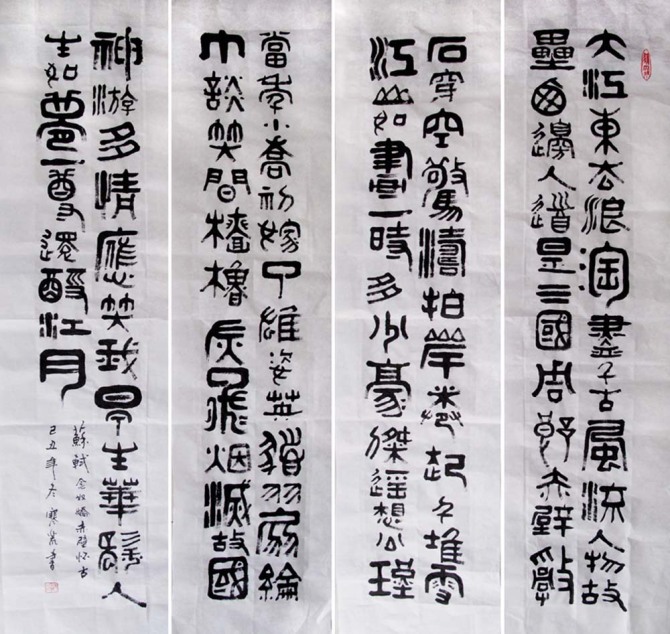 大江東去浪淘盡千古風流人物故
壘西邊人道是三國周郎赤壁亂
石穿空驚濤拍岸捲起千堆雪
江山如畫一時多少豪傑遙想公瑾
當年小喬初嫁了雄姿英發羽扇綸
巾談笑間檣櫓灰飛烟滅故國
神游多情應笑我早生華髮人
生如夢一尊還酹江月
蘇軾念奴嬌赤壁懷古
己丑年冬寒書